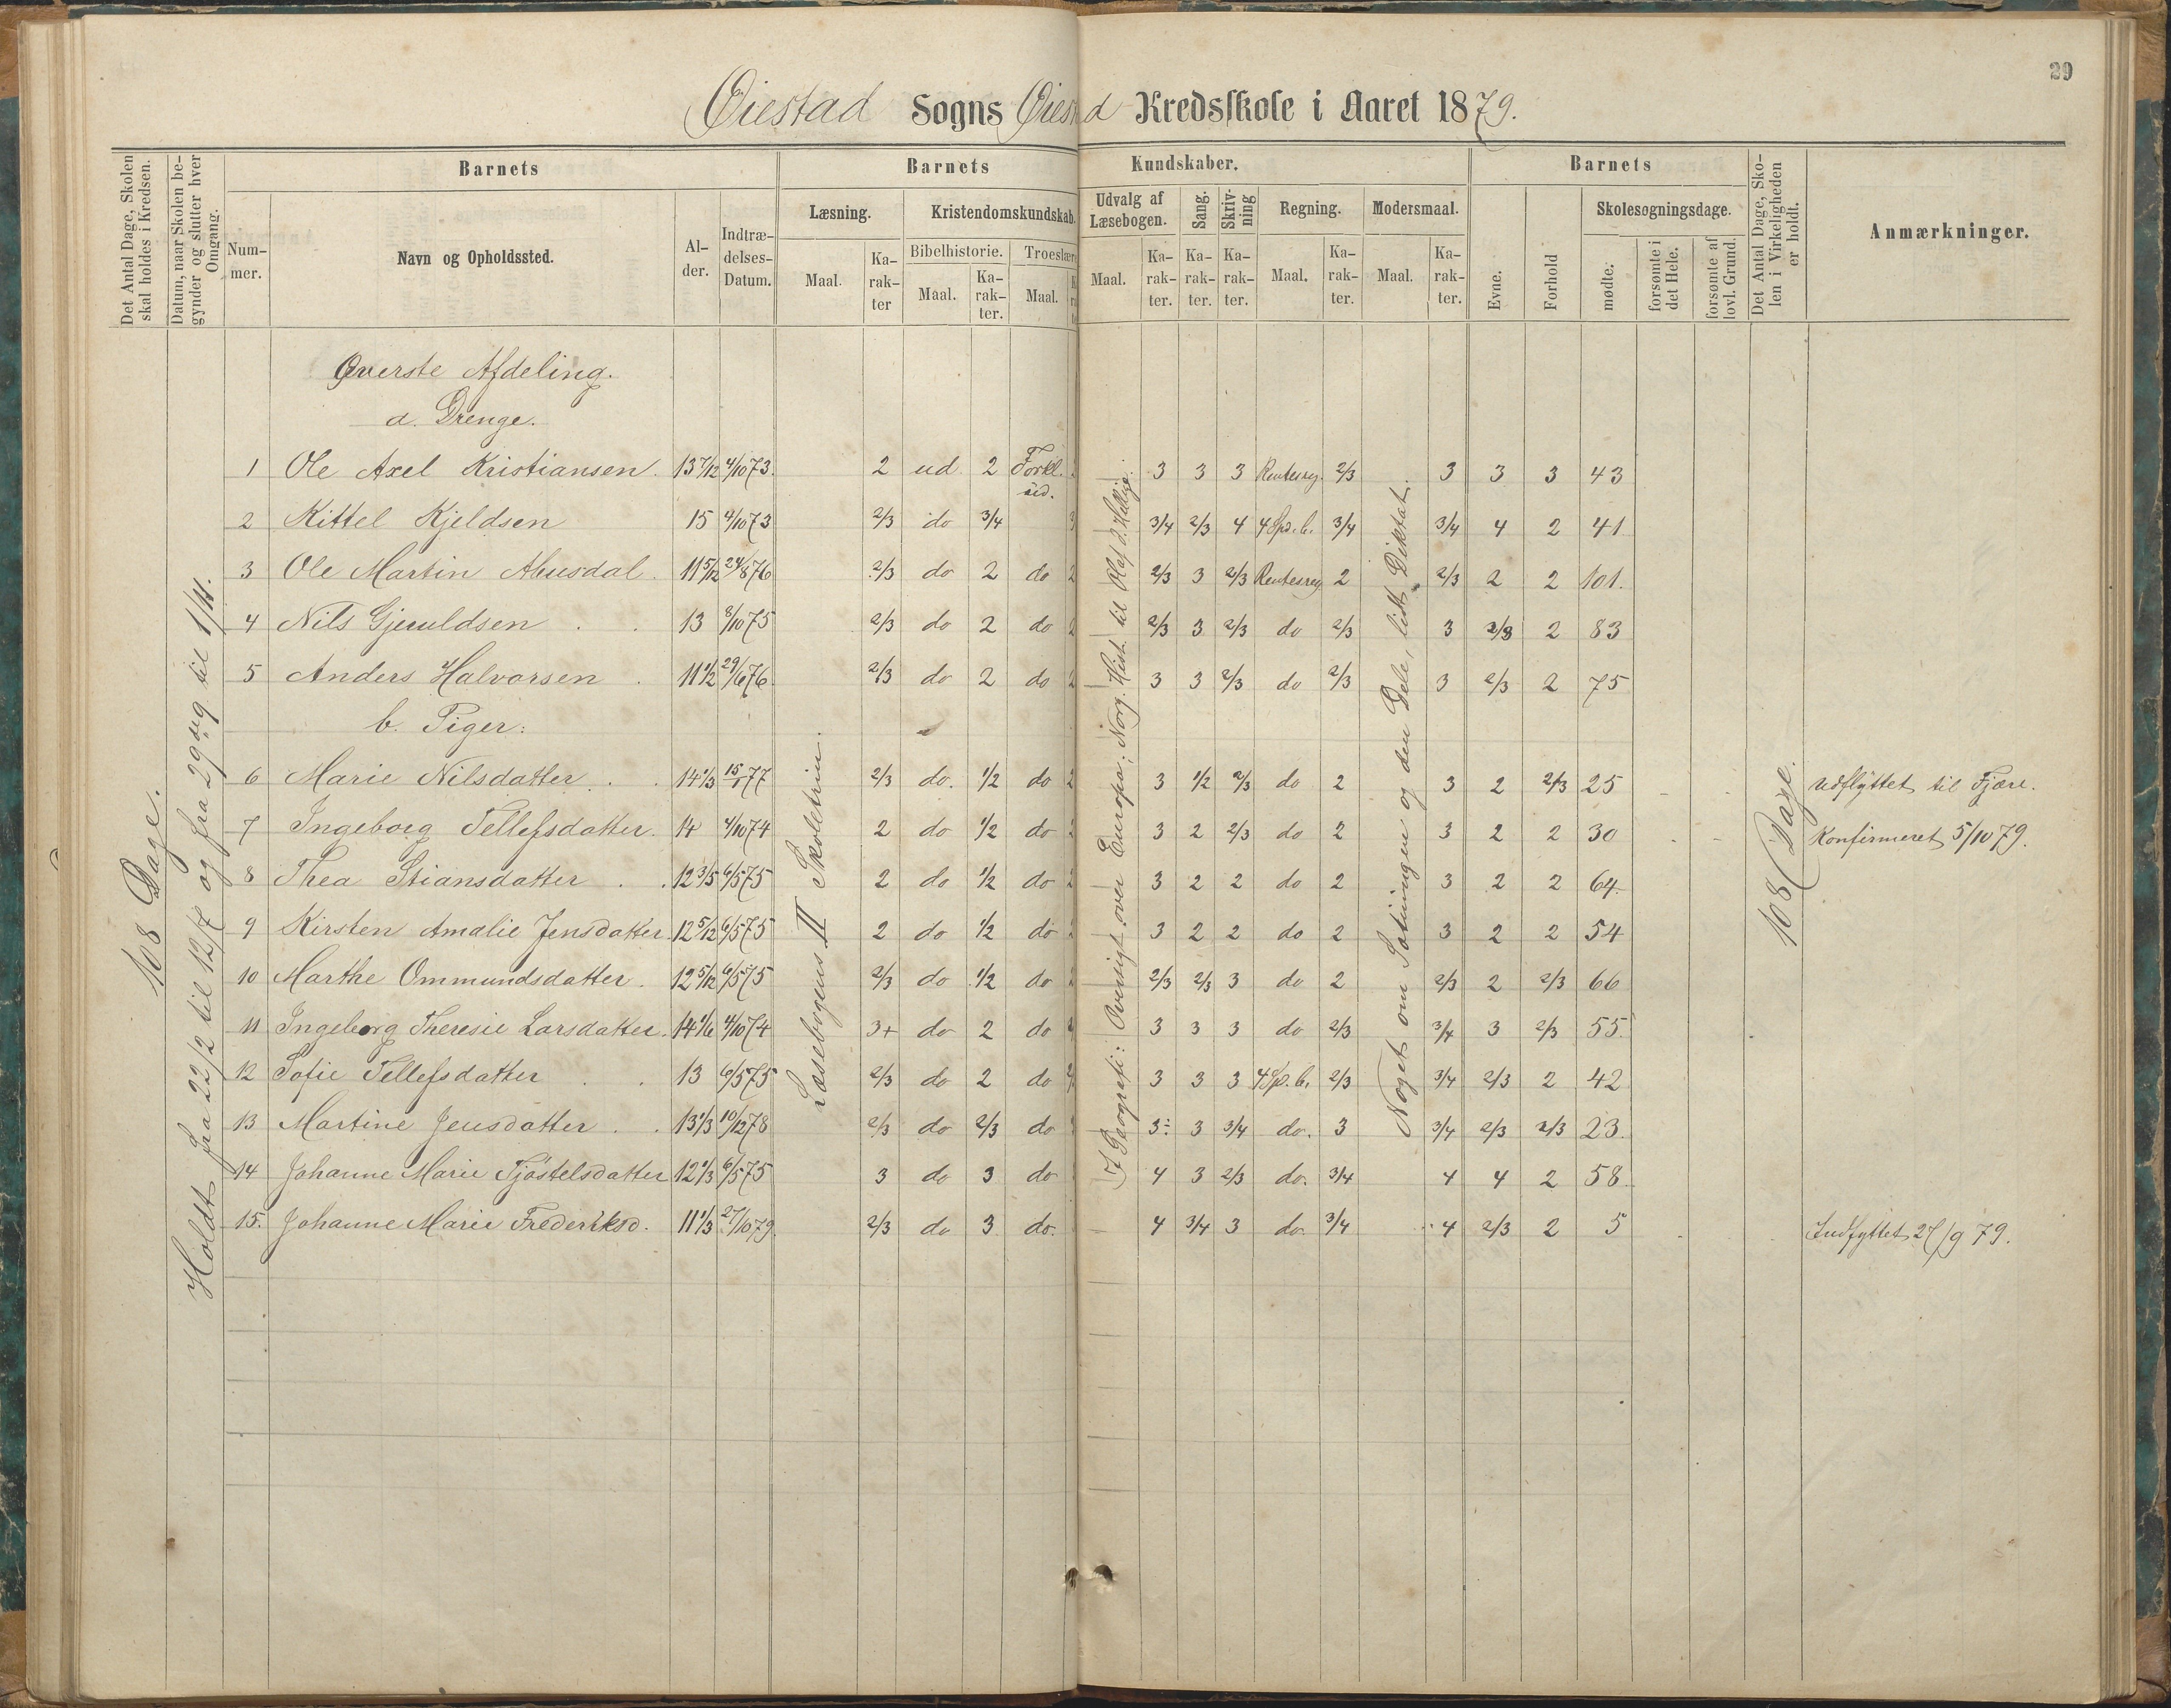 29
Øiestad Sogns Øiestad Kredsskole i Aaret 1879.
Det Antal Dage, Skolen skal holdes i Kredsen.
Datum, naar Skolen begynder og slutter hver Omgang.
Barnets
Nummer.
Navn og Opholdssted.
Alder.
Indtrædelses-Datum.
Barnets Kundskaber.
Læsning.
Maal.
Karakter
Kristendomskundskab.
Bibelhistorie.
Maal.
Karakter.
Troeslære
Maal.
Udvalg af Læsebogen.
Maal.
Karakter.
Sang.
Karakter.
Skrivning
Karakter.
Regning.
Maal.
Karakter.
Modersmaal.
Maal.
Karakter.
Barnets
Evne.
Forhold
Skolesøgningsdage.
mødte.
forsømte i det Hele.
forsømte af lovl. Grund.
Det Antal Dage, Skolen i Virkeligheden er holdt.
Anmærkninger.
108 Dage.
Holdt fra 22/2 til 12/7 og fra 29 aug til 1/11.
Læsebogens II Skoletrin.
Geografi: Oversigt over Europa; Norg. Hist. til Olaf d. Hellige.
Noget om Sætningen og dens Dele, lidt Diktat.
108 Dage.
Øverste Afdeling.
a. Drenge.
1 Ole Axel Kristiansen. 13 7/12 4/10 73. 2 ud 2 Forkl. ud. 3 3 3 Rentesreg. 2/3 3 3 3 43
2 Kittel Kjeldsen 15 4/10 73 2/3 do 3/4 3/4 2/3 4 4 Sp. b. 3/4 3/4 4 2 41
3 Ole Martin Abusdal. 11 5/12 24/8 76 2/3 do 2 do 2/3 3 2/3 Rentesreg 2 2/3 2 2 101.
4 Nils Gjeruldsen 13 8/10 75 2/3 do 2 do 2/3 3 2/3 do 2/3 3 2/3 2 83
5 Anders Halvorsen 11 1/2 29/6 76 2/3 do 2 do 3 3 2/3 do 2/3 3 2/3 2 75
b. Piger:
6 Marie Nilsdatter 14 1/3 15/1 77 2/3 do. 1/2 do 3 1/2 2/3 do 2 3 2 2/3 25 Udflyttet til Fjære.
7 Ingeborg Tellefsdatter. 14 4/10 74 2 do 1/2 do 3 2 2/3 do 2 3 2 2 30 Konfirmeret 5/10 79.
8 Thea Stiansdatter 12 3/5 6/5 75 2 do 1/2 do 3 2 2 do 2 3 2 2 64.
9 Kirsten Amalie Jensdatter 12 5/12 6/5 75 2 do 1/2 do 3 2 2 do 2 3 2 2 54
10 Marthe Ommundsdatter. 12 5/12 6/5 75 2/3 do 1/2 do 2/3 2/3 3 do 2 2/3 2 2/3 66
11 Ingeborg Theresie Larsdatter. 14 1/6 4/10 74 3+ do 2 do 3 3 3 do 2/3 3/4 3 2/3 55.
12 Sofie Tellefsdatter 13 6/5 75 2/3 do 2 do 3 3 3 4 Sp. b. 2/3 3/4 2/3 2 42
13 Martine Jensdatter 13 1/3 10/12 78 2/3 do 2/3 do 3÷ 3 3/4 do. 3 3/4 2/3 2/3 23.
14 Johanne Marie Tjøstelsdatter 12 1/3 6/5 75 3 do 3 do 4 3 2/3 do. 3/4 4 4 2 58.
15. Johanne Marie Frederiksd. 11 1/3 27/10 79. 2/3 do 3 do. 4 3/4 3 do. 3/4 4 2/3 2 5 Indflyttet 27/9 79.